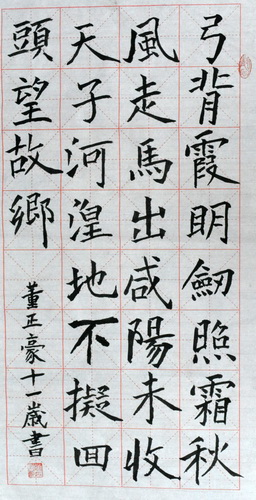 弓背霞明劒照霜秋
風走馬出咸陽未收
天子河湟地不擬回
頭望故鄉
董正豪十一歲書